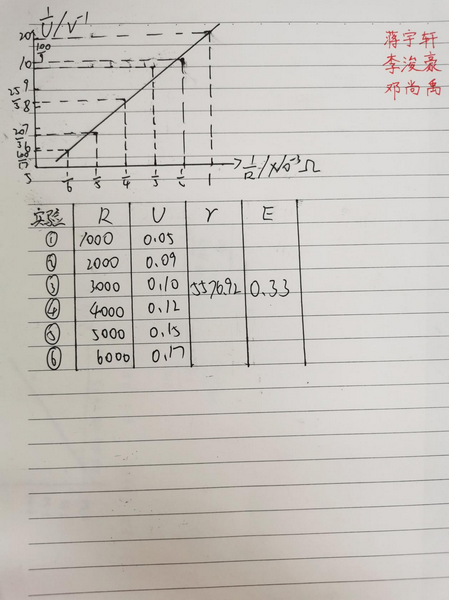 1/U / V⁻¹
20
100/9
10
25/3
20/3
1/6 1/5 1/4 1/3 1/2 1
1/R / ×10⁻³ Ω
蒋宇轩
李浚豪
邓尚禹
实验 R U r E
① 1000 0.05
② 2000 0.09
③ 3000 0.10 5576.92 0.33
④ 4000 0.12
⑤ 5000 0.15
⑥ 6000 0.17